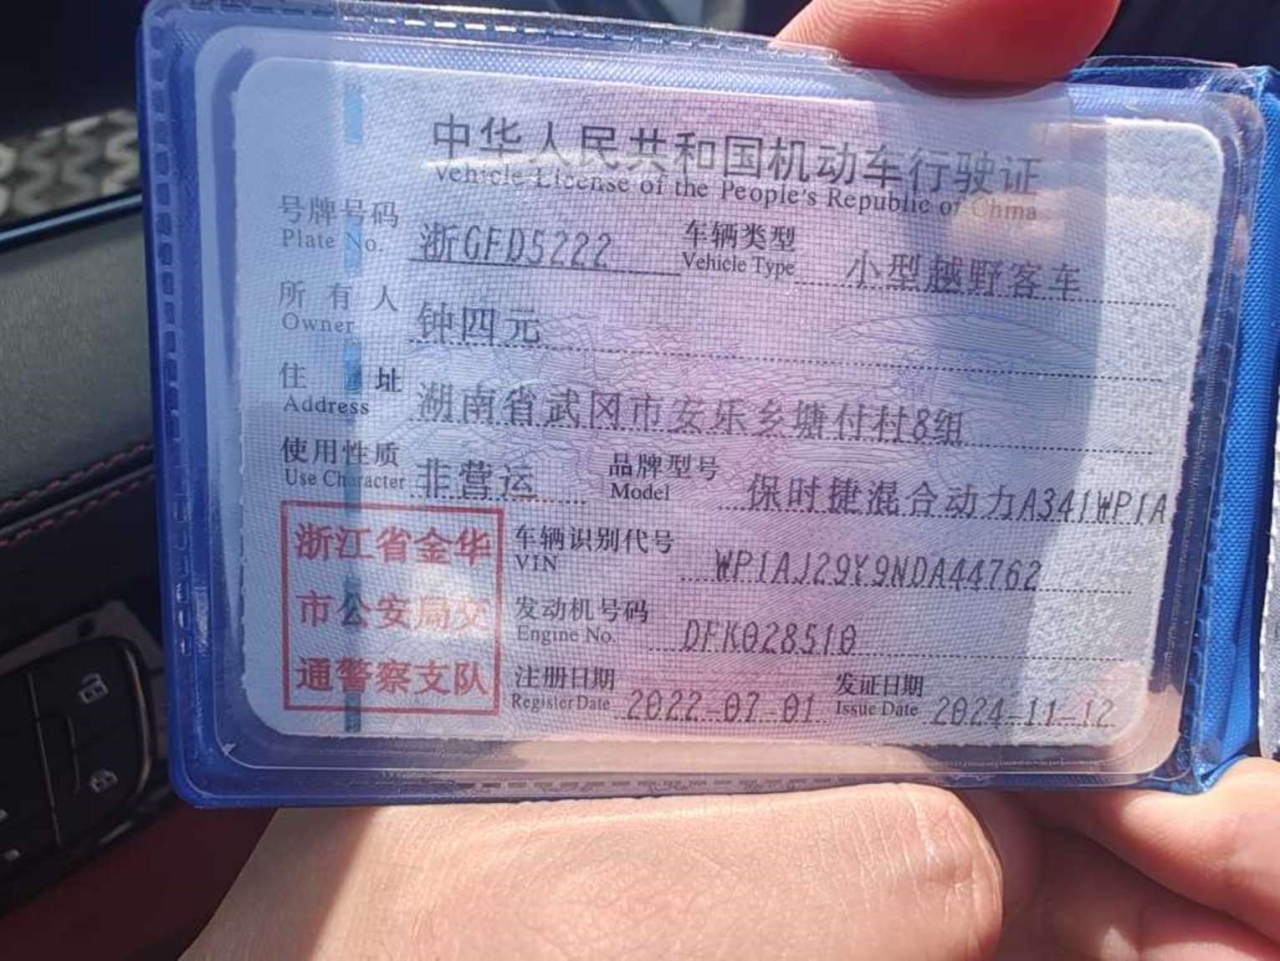 中华人民共和国机动车行驶证
Vehicle License of the People's Republic of China
号牌号码 浙GFD5222 车辆类型 小型越野客车
Plate No. Vehicle Type
所有人 钟四元
Owner
住 址 湖南省武冈市安乐乡塘付村8组
Address
使用性质 非营运 品牌型号 保时捷混合动力A341WP1A
Use Character Model
浙江省金华
市公安局交
通警察支队
车辆识别代号 WP1AJ29Y9NDA44762
VIN
发动机号码 DFK028510
Engine No.
注册日期 2022-07-01 发证日期 2024-11-12
Register Date Issue Date